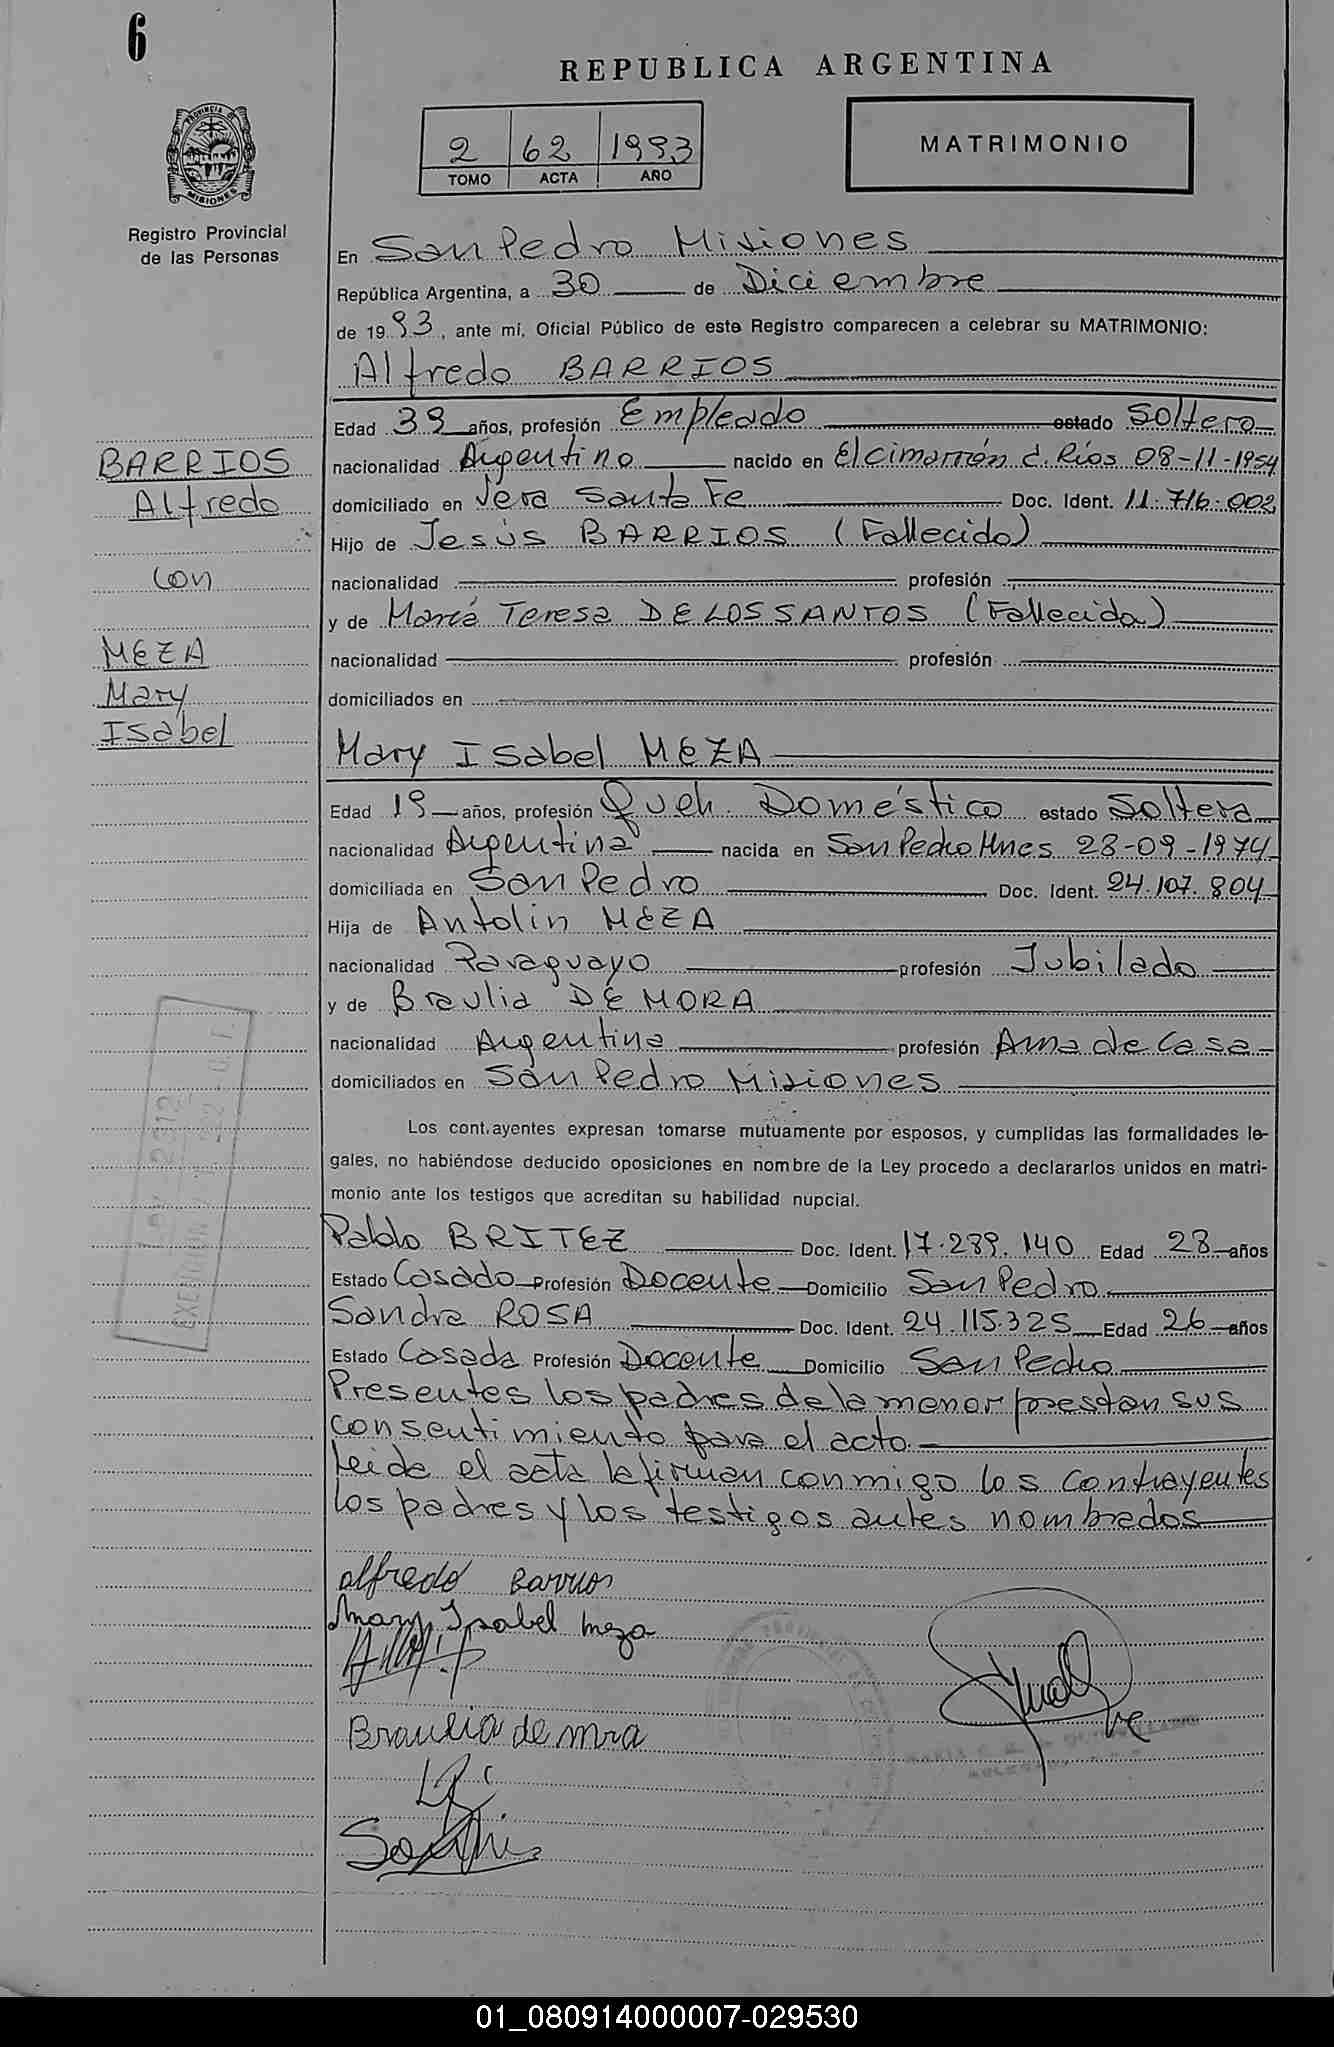 6
REPUBLICA ARGENTINA
2 62 1993
TOMO ACTA AÑO
MATRIMONIO
PROVINCIA DE MISIONES
Registro Provincial
de las Personas
En San Pedro Misiones
República Argentina, a 30 de Diciembre
de 1993, ante mí, Oficial Público de este Registro comparecen a celebrar su MATRIMONIO:
Alfredo BARRIOS
Edad 39 años, profesión Empleado estado Soltero
nacionalidad Argentino nacido en El cimarrón E. Ríos 08-11-1954
domiciliado en Vera Santa Fe Doc. Ident. 11.716.002
Hijo de Jesús BARRIOS (Fallecido)
nacionalidad profesión
y de María Teresa DE LOS SANTOS (Fallecida)
nacionalidad profesión
domiciliados en
BARRIOS
Alfredo
con
MEZA
Mary
Isabel
Mary Isabel MEZA
Edad 19 años, profesión Queh. Doméstico estado Soltera
nacionalidad Argentina nacida en San Pedro Mnes 23-09-1974
domiciliada en San Pedro Doc. Ident. 24.107.804
Hija de Antolin MEZA
nacionalidad Paraguayo profesión Jubilado
y de Braulia DE MORA
nacionalidad Argentina profesión Ama de Casa
domiciliados en San Pedro Misiones
Los contrayentes expresan tomarse mutuamente por esposos, y cumplidas las formalidades le-
gales, no habiéndose deducido oposiciones en nombre de la Ley procedo a declararlos unidos en matri-
monio ante los testigos que acreditan su habilidad nupcial.
Pablo BRITEZ Doc. Ident. 17.289.140 Edad 28 años
Estado Casado Profesión Docente Domicilio San Pedro
Sandra ROSA Doc. Ident. 24.115.325 Edad 26 años
Estado Casada Profesión Docente Domicilio San Pedro
Presentes los padres de la menor prestan sus
consentimiento para el acto
Leida el acta la firman conmigo los contrayentes
los padres y los testigos antes nombrados
alfredo Barrios
Mary Isabel meza
Braulia de mra
01_080914000007-029530